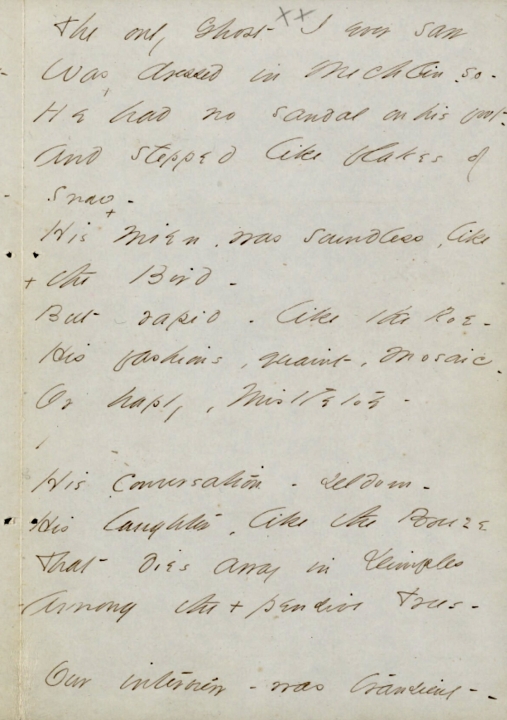 The only Ghost I ever saw
Was dressed in Mechlin - so -
He had no sandal on his foot -
And stepped like flakes of
snow -
His Mien, was soundless, like
+ the Bird -
But rapid - like the Roe -
His fashions, quaint, Mosaic -
Or haply, Mistletoe -
His conversation - seldom -
His laughter, like the Breeze
That dies away in Dimples
Among the + pensive Trees -
Our interview - was transient -